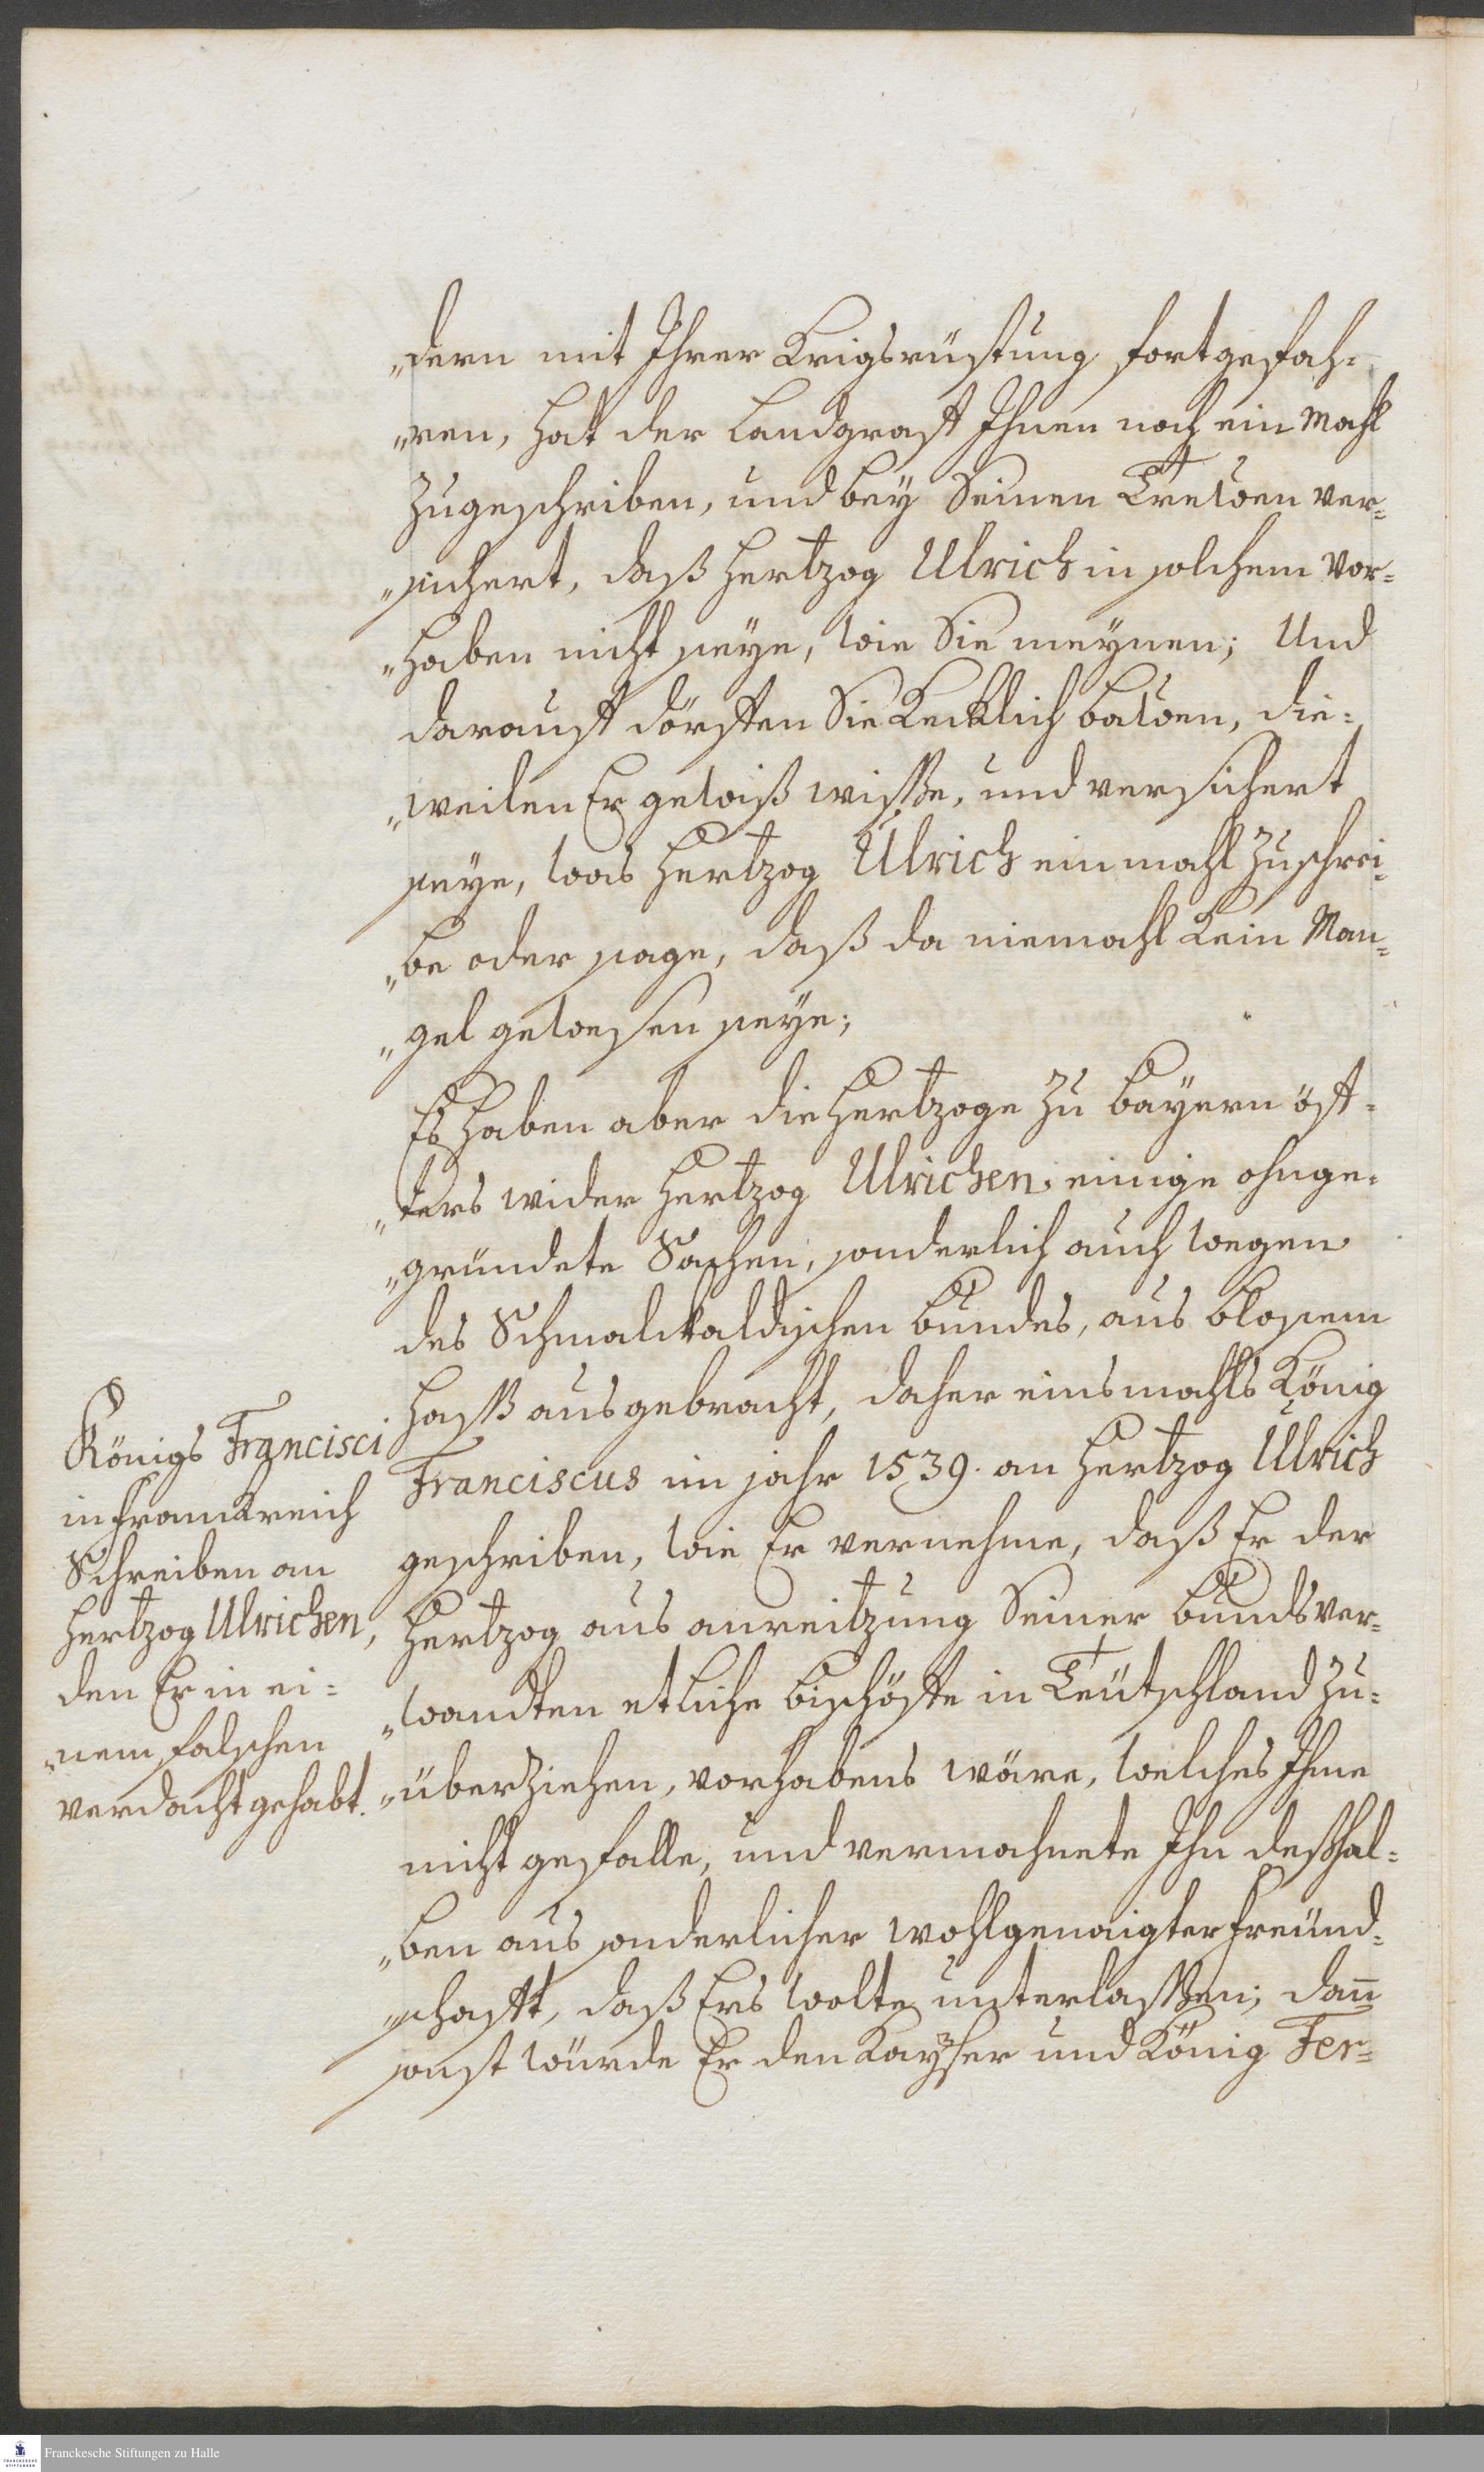 „dern mit Ihrer Krigsrüstung fortgefah=
„ren, hat der Landgraff Ihnen noch ein Mahl
zugeschriben, und bey Seinen Trewen ver=
„sichert, daß Hertzog Ulrich in solchem Vor=
„haben nicht seye, wie Sie meynen; Und
darauff dörffen Sie Kecklich bawen, die=
„weilen Er gewiß wisße, und versichert
seye, was Hertzog Ulrich einmahl zuschrei=
„be oder sage, daß da niemahl Kein Man=
„gel gewesen seye;
Es haben aber die Hertzoge zu Bayern öff=
„ters wider Hertzog Ulrichen, einige ohnge=
„gründete Sachen, sonderlich auch wegen
des Schmalckaldischen Bundes, aus blosem
Haß ausgebracht, daher einsmahls König
Franciscus im jahr 1539. an Hertzog Ulrich
geschriben, wie Er vernehme, daß Er der
Hertzog aus anreitzung Seiner Bundsver=
„wandten etliche Bischöffe in Teütschland zu=
„überziehen, vorhabens wäre, welches Ihme
nicht gefalle, und vermahnete Ihn deßhal=
„ben aus sonderlicher wohlgenaigter Freünd=
„schafft, daß Ers wolte unterlaßen; dañ
sonst würde Er den Kayser und König Fer=
Königs Francisci
in Franckreich
Schreiben an
Hertzog Ulrichen,
den Er in ei=
„nem falschen
verdacht gehabt.
Franckesche Stiftungen zu Halle
FRANCKESCHE
STIFTUNGEN